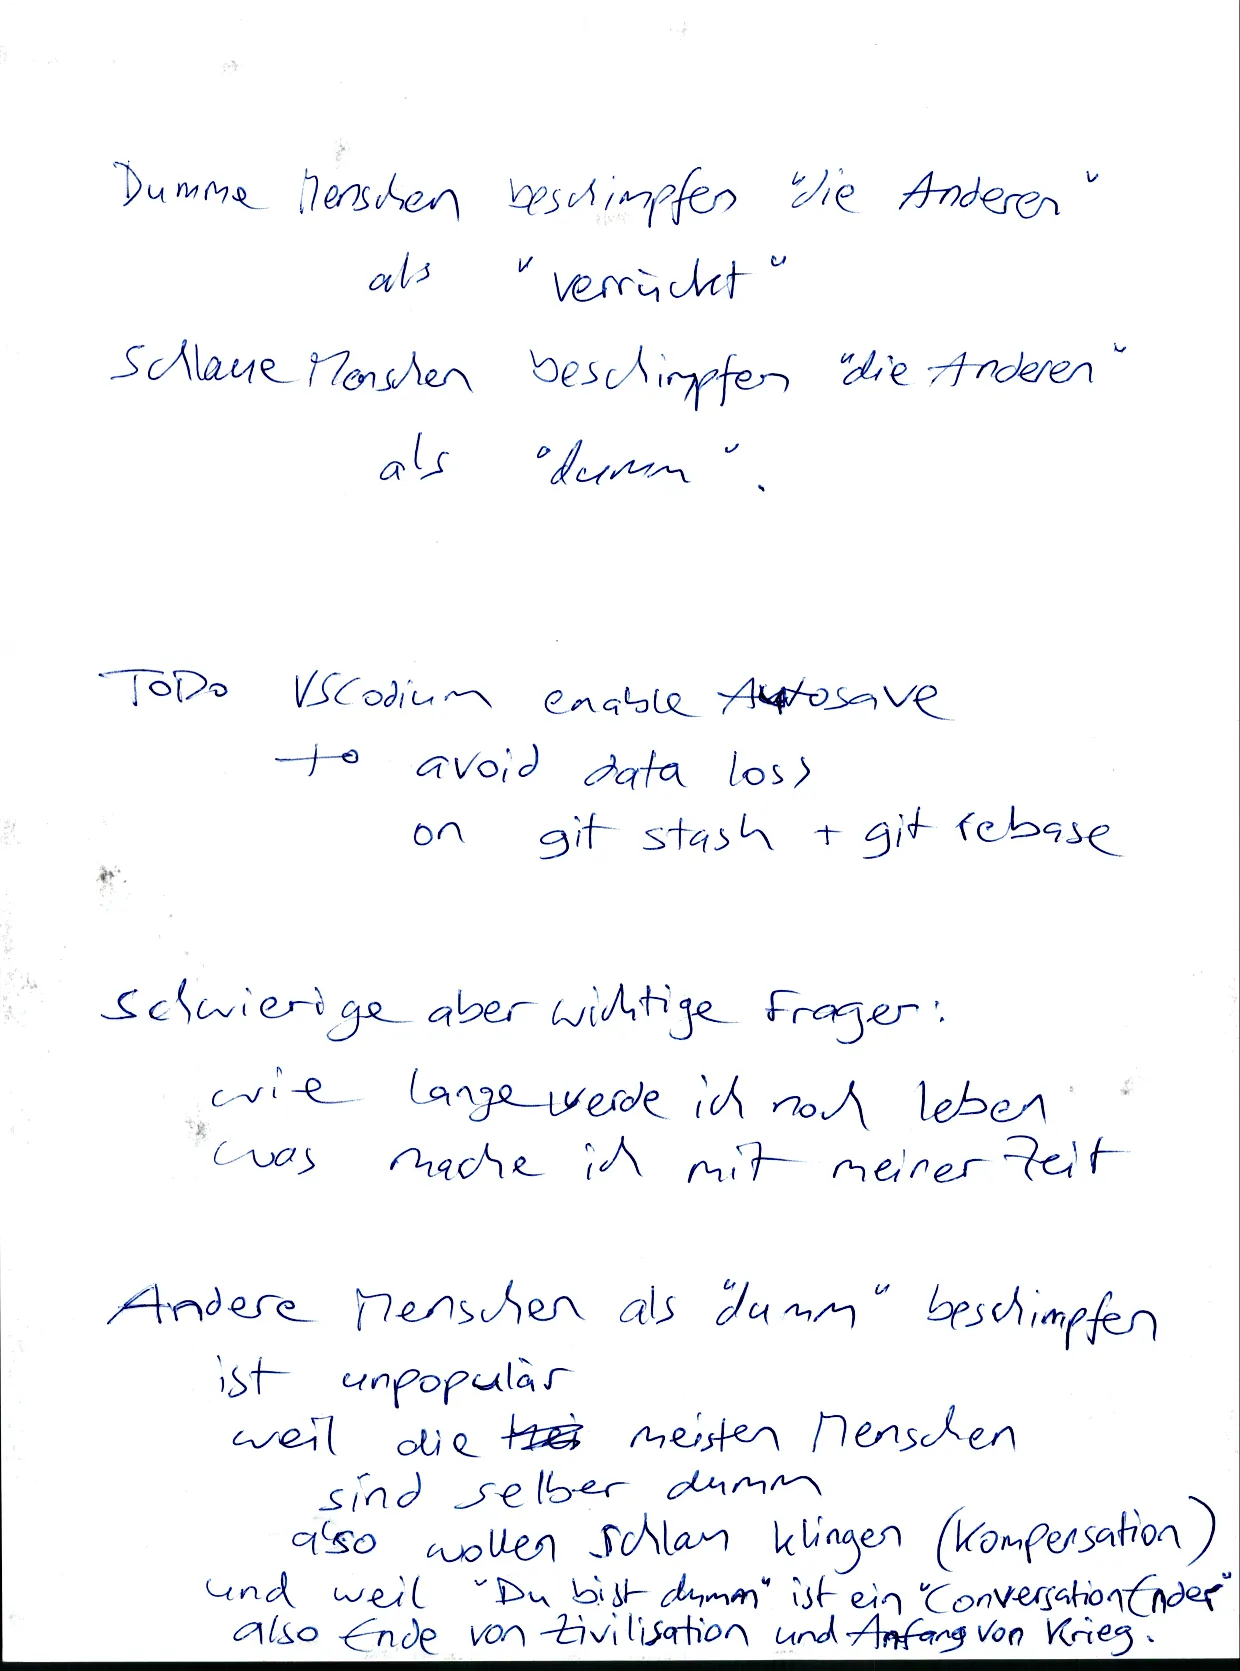 Dumme Menschen beschimpfen "die Anderen"
als "verrückt"
Schlaue Menschen beschimpfen "die Anderen"
als "dumm".
TODO VSCodium enable Autosave
to avoid data loss
on git stash + git rebase
Schwierige aber wichtige Fragen:
wie lange werde ich noch leben
was mache ich mit meiner Zeit
Andere Menschen als "dumm" beschimpfen
ist unpopulär
weil die meisten Menschen
sind selber dumm
also wollen schlau klingen (Kompensation)
und weil "Du bist dumm" ist ein "Conversation Ender"
also Ende von Zivilisation und Anfang von Krieg.